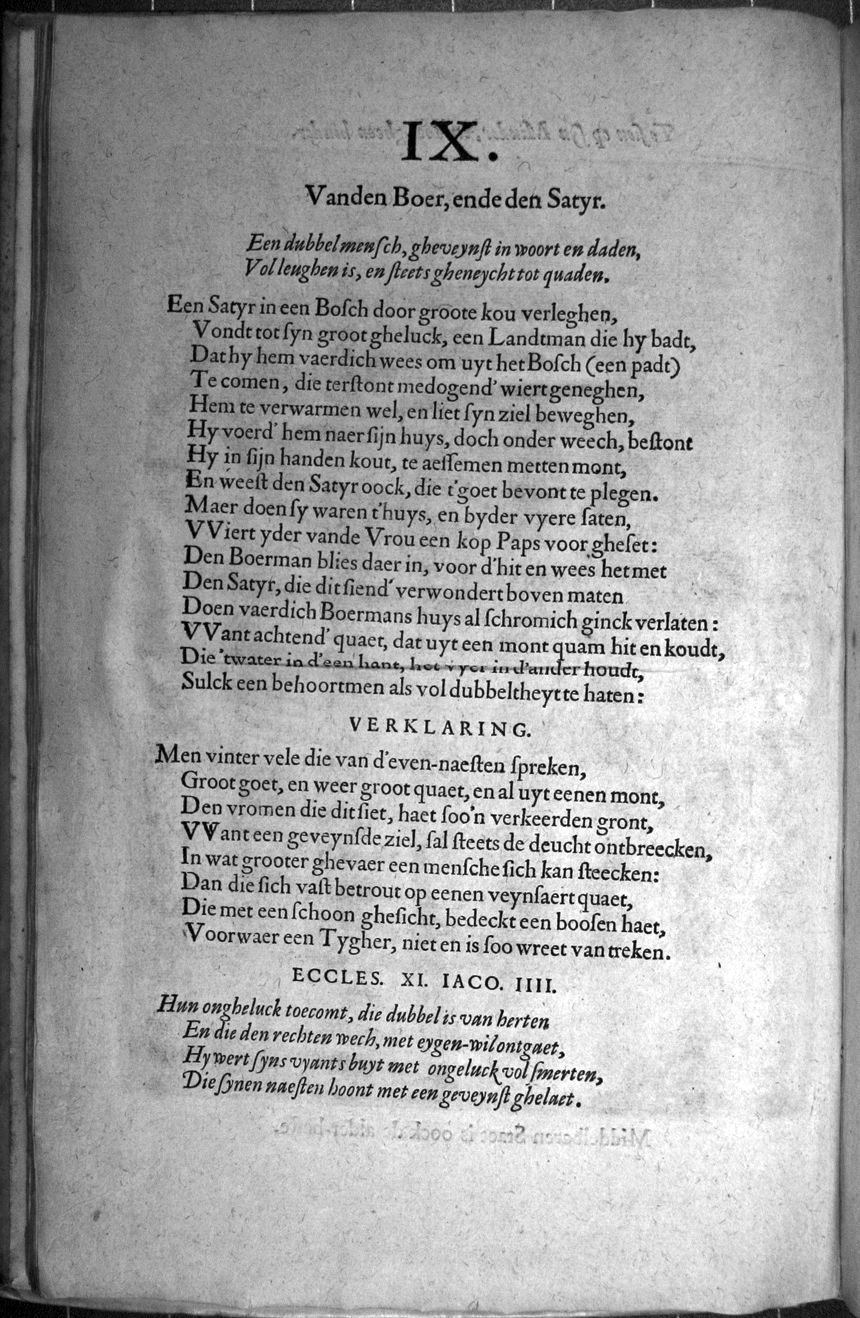 IX.
Vanden Boer, ende den Satyr.
Een dubbel menſch, gheveynſt in woort en daden,
Vol leughen is, en ſteets gheneycht tot quaden.
Een Satyr in een Boſch door groote kou verleghen,
Vondt tot ſyn groot gheluck, een Landtman die hy badt,
Dat hy hem vaerdich wees om uyt het Boſch (een padt)
Te comen, die terſtont medogend' wiert geneghen,
Hem te verwarmen wel, en liet ſyn ziel beweghen,
Hy voerd' hem naer ſijn huys, doch onder weech, beſtont
Hy in ſijn handen kout, te aeſſemen metten mont,
En weeſt den Satyr oock, die t'goet bevont te plegen.
Maer doen ſy waren t'huys, en by der vyere ſaten,
VViert yder vande Vrou een kop Paps voor gheſet:
Den Boerman blies daer in, voor d'hit en wees het met
Den Satyr, die dit ſiend' verwondert boven maten
Doen vaerdich Boermans huys al ſchromich ginck verlaten:
VVant achtend' quaet, dat uyt een mont quam hit en koudt,
Die 'twater in d'een hant, het vyer in d'ander houdt,
Sulck een behoortmen als vol dubbeltheyt te haten:
VERKLARING.
Men vinter vele die van d'even-naeſten ſpreken,
Groot goet, en weer groot quaet, en al uyt eenen mont,
Den vromen die dit ſiet, haet ſoo'n verkeerden gront,
VVant een geveynſde ziel, ſal ſteets de deucht ontbreecken,
In wat grooter ghevaer een menſche ſich kan ſteecken:
Dan die ſich vaſt betrout op eenen veynſaert quaet,
Die met een ſchoon gheſicht, bedeckt een booſen haet,
Voorwaer een Tygher, niet en is ſoo wreet van treken.
ECCLES. XI. IACO. IIII.
Hun ongheluck toecomt, die dubbel is van herten
En die den rechten wech, met eygen-wil ontgaet,
Hy wert ſyns vyants buyt met ongeluck vol ſmerten,
Die ſynen naeſten hoont met een geveynſt ghelaet.